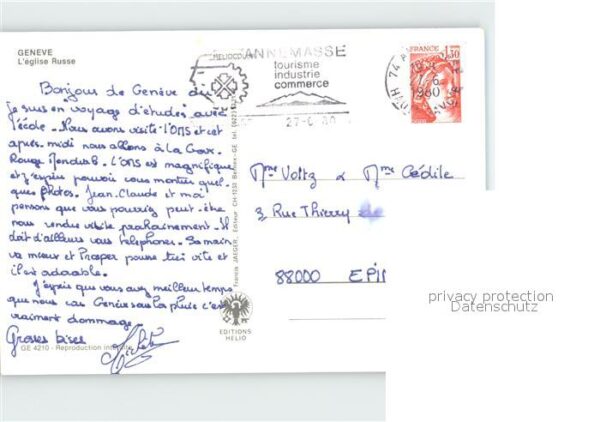 GENEVE
L'église Russe
Bonjour de Genève où
je suis en voyage d'études avec
l'école. Nous avons visité l'OMS et cet
après-midi nous allons à la Croix
Rouge Mondiale. L'OMS est magnifique
et j'espère pouvoir vous montrer quel-
ques photos. Jean-Claude et moi
pensons que vous pourriez peut-être
nous rendre visite prochainement. Il
doit d'ailleurs vous téléphoner. Sa main
va mieux et Prosper pousse très vite et
il est adorable.
J'espère que vous avez meilleur temps
que nous car Genève sous la pluie c'est
vraiment dommage.
Grosses bises
GE 4210 - Reproduction
Francis JAEGER, Editeur CH-1233 Bernex-GE tél.
EDITIONS
HELIO
ANNEMASSE
tourisme
industrie
commerce
27-6
FRANCE
1980
Mme Voltz & Mme Cédile
3, Rue Thierry
88000 EPI
privacy protection
Datenschutz